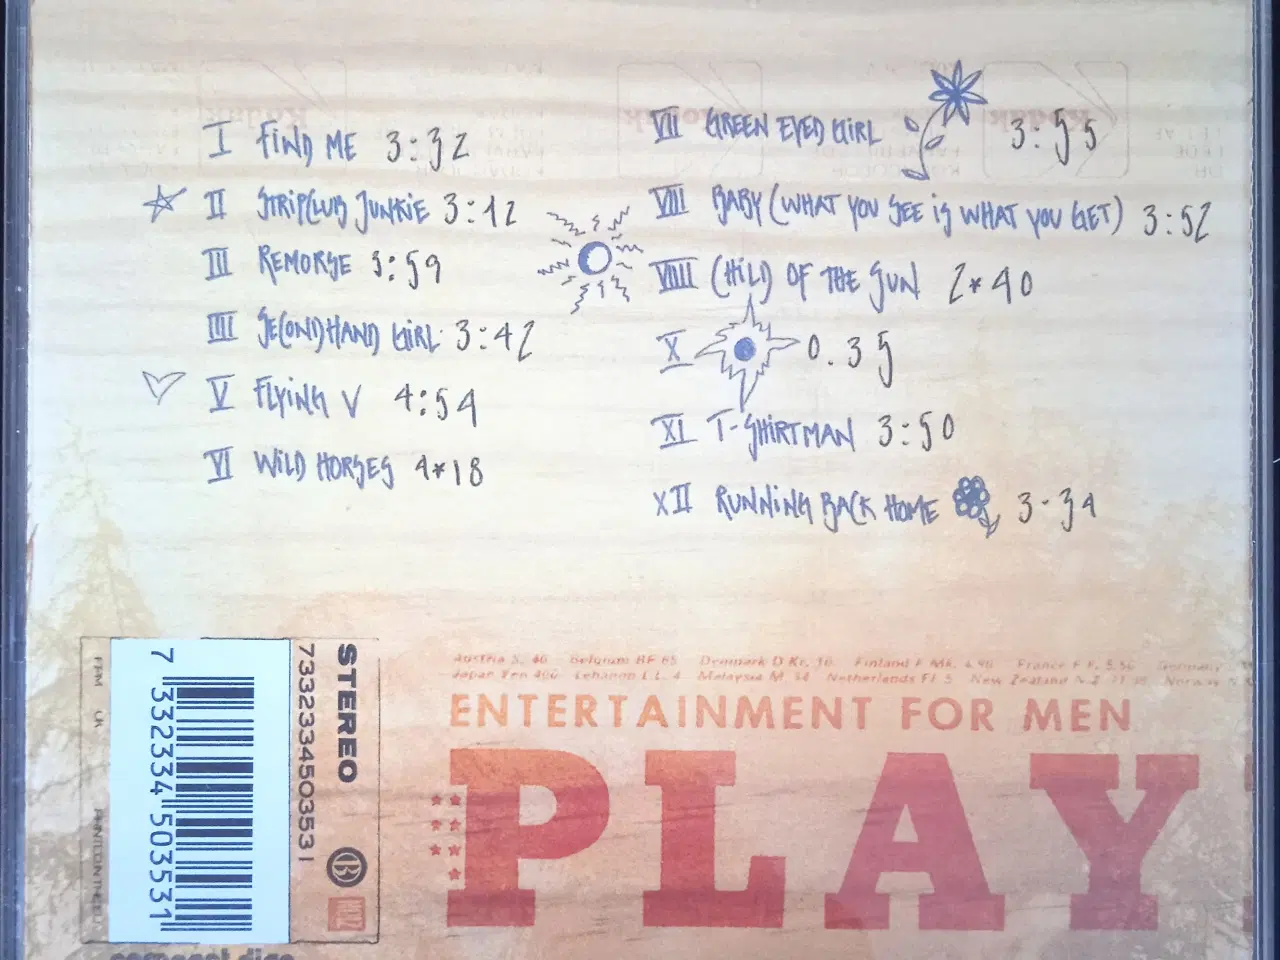 I FIND ME 3:32
II STRIPCLUB JUNKIE 3:12
III REMORSE 3:59
IIII SECONDHAND GIRL 3:42
V FLYING V 4:54
VI WILD HORSES 4*18
VII GREEN EYED GIRL 3:55
VIII BABY (WHAT YOU SEE IS WHAT YOU GET) 3:52
VIIII CHILD OF THE SUN 2*40
X 0.35
XI T-SHIRTMAN 3:50
XII RUNNING BACK HOME 3-34
Austria S. 40 Belgium BF 65 Denmark D Kr. 10 Finland F Mk. 4.90 France F F. 5.50 Germany
Japan Yen 400 Lebanon L L. 4 Malaysia M. $4 Netherlands Fl 5 New Zealand N Z Norway N K
ENTERTAINMENT FOR MEN
PLAY
STEREO
7332334503531
7 332334 503531
PRINTED IN THE
compact disc
Kodak
Kodak